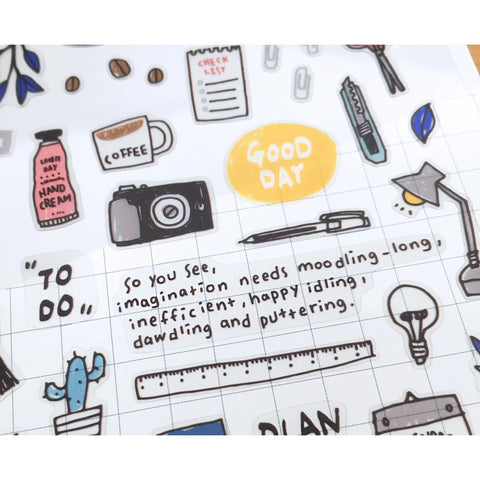 CHECK
LIST
COFFEE
LOVELY
DAY
HAND
CREAM
GOOD
DAY
"TO
DO"
So you see,
imagination needs moodling-long,
inefficient, happy idling,
dawdling and puttering.
PLAN